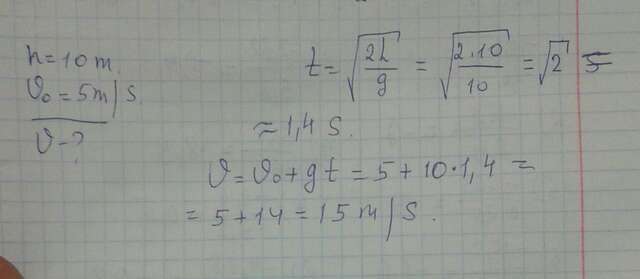 h=10m.
v₀=5m/s.
v-?
t=√(2h/g) = √(2·10/10) = √2 5
≈1,4 s.
v=v₀+gt=5+10·1,4=
=5+14=15m/s.